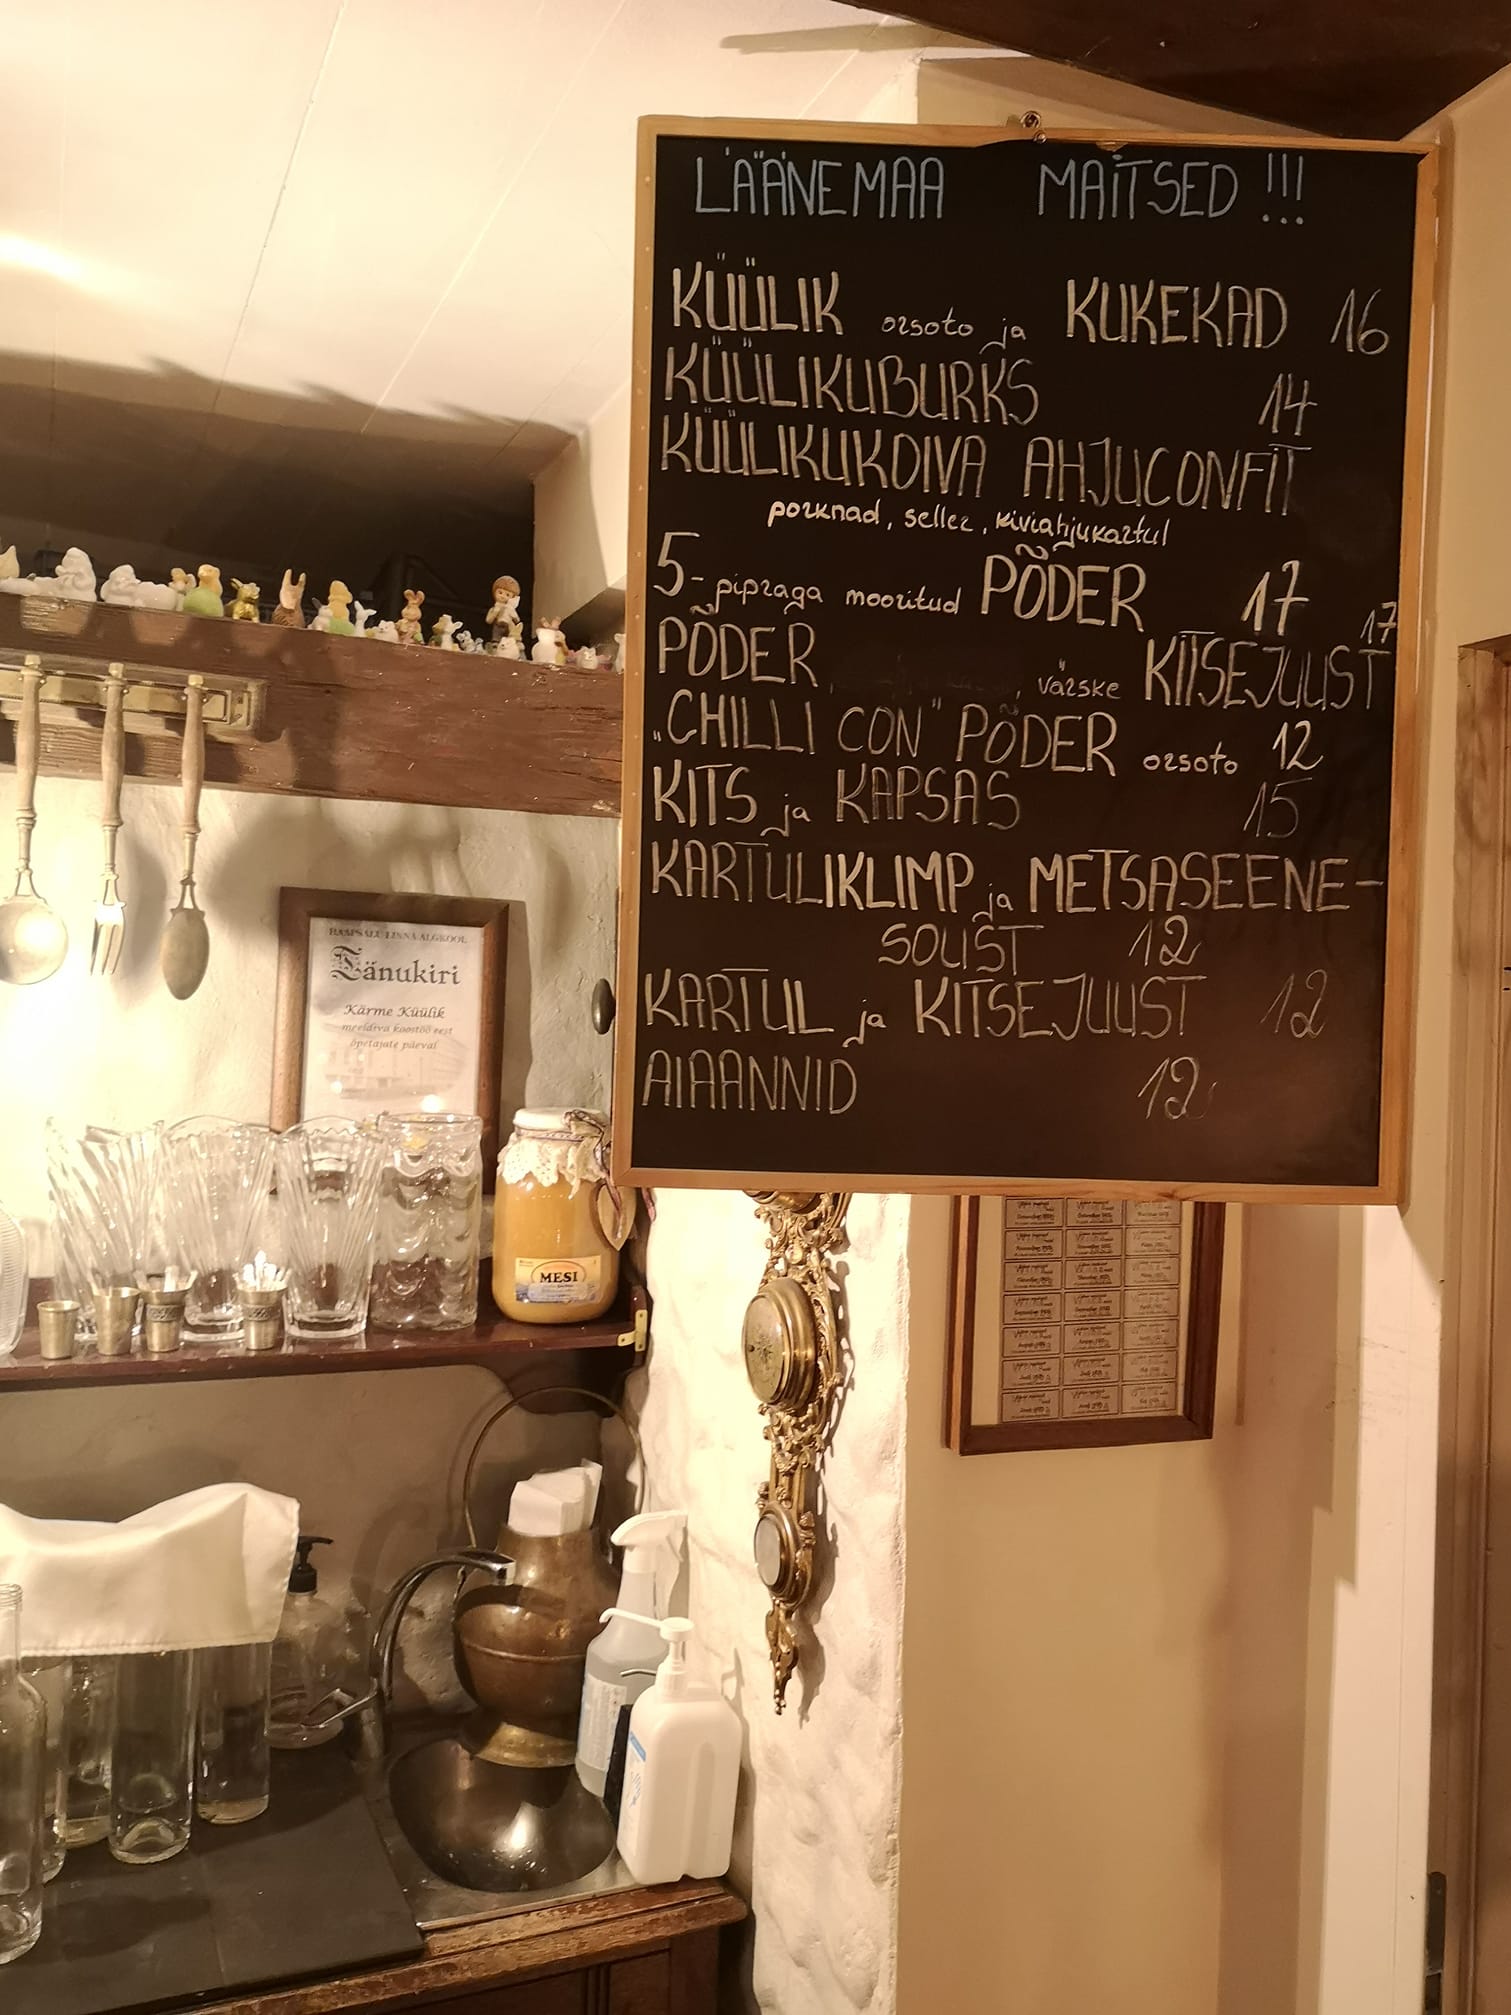 LÄÄNEMAA MAITSED !!!
KÜÜLIK orsoto ja KUKEKAD 16
KÜÜLIKUBURKS 14
KÜÜLIKUKOIVA AHJUCONFIT
porknad, seller, kiviahjukartul
5-pipraga mooritud PÕDER 17
PÕDER, , värske KITSEJUUST 17
"CHILLI CON" PÕDER orsoto 12
KITS ja KAPSAS 15
KARTULIKLIMP ja METSASEENE-
SOUST 12
KARTUL ja KITSEJUUST 12
AIAANNID 12
HAAPSALU LINNA ALGKOOL
Tänukiri
Kärme Küülik
meeldiva koostöö eest
õpetajate päeval
MESI